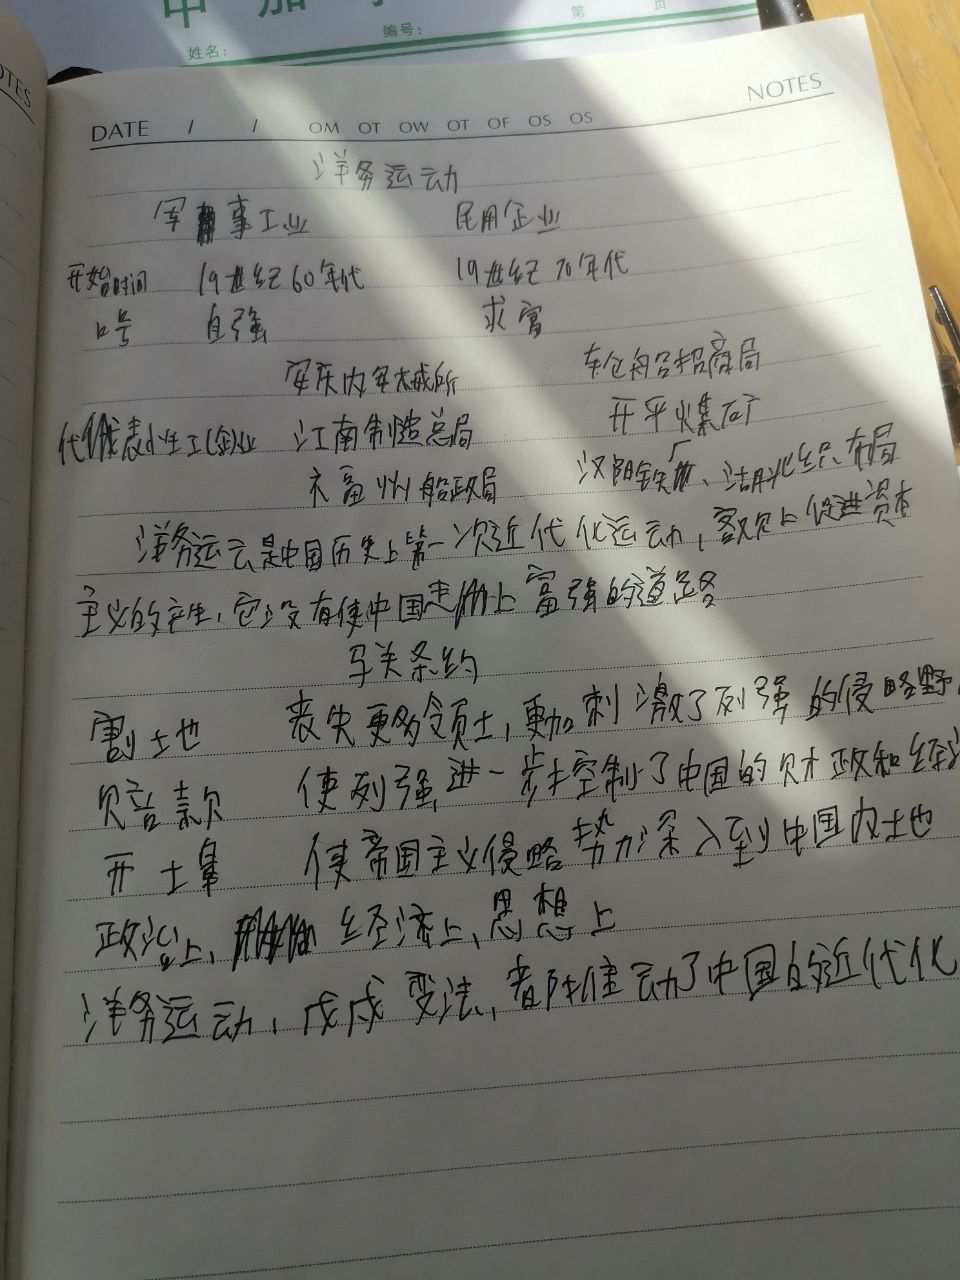 OTES
中 加
姓名: 编号: 第 页
NOTES
DATE / / OM OT OW OT OF OS OS
洋务运动
军事工业 民用企业
开始时间 19世纪60年代 19世纪70年代
口号 自强 求富
安庆内军械所 轮船招商局
开平煤矿
代表性工企业 江南制造总局
福州船政局 汉阳铁厂、湖北织布局
洋务运动是中国历史上第一次近代化运动,客观上促进资本
主义的产生,它没有使中国走上富强的道路
马关条约
割土地 丧失更多领土,更加刺激了列强的侵略野
赔款 使列强进一步控制了中国的财政和经济
开 使帝国主义侵略势力深入到中国内土地
政治上、经济上、思想上
洋务运动、戊戌变法,都推动了中国的近代化